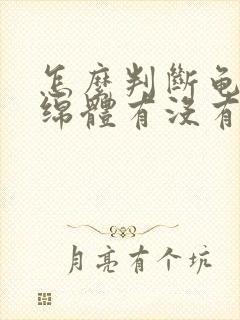 怎麽判斷龟
绵體有没有
月亮有个坑